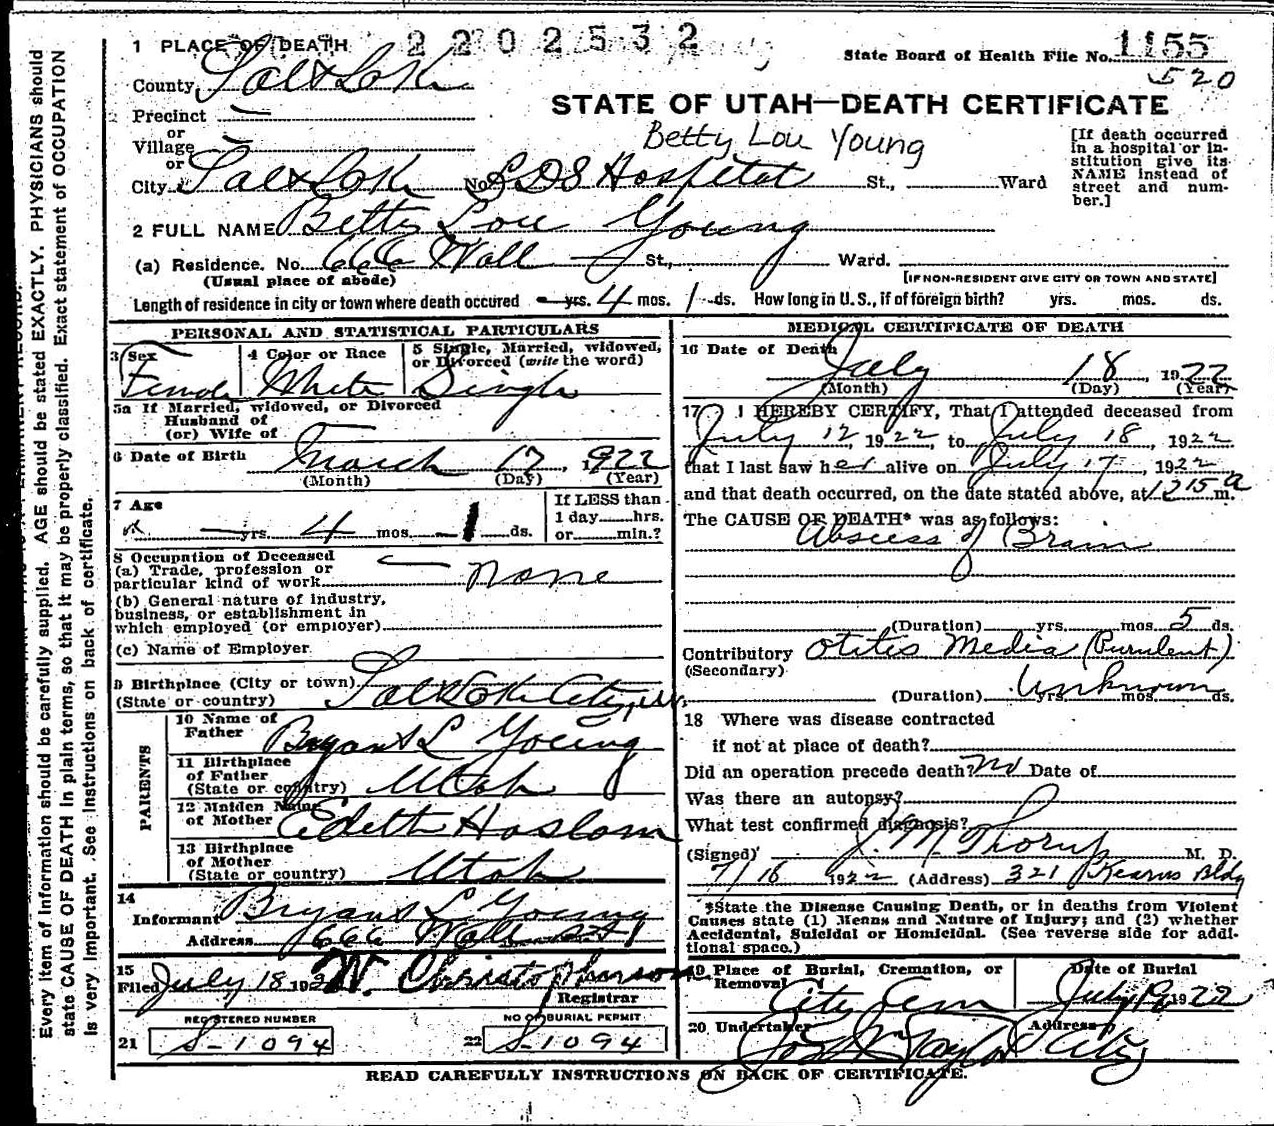 1 PLACE OF DEATH 2202532
State Board of Health File No. 1155
520
County Salt Lake
STATE OF UTAH—DEATH CERTIFICATE
Precinct
or
Village
or
Betty Lou Young
City Salt Lake No. LDS Hospital St., Ward
[If death occurred in a hospital or institution give its NAME instead of street and number.]
2 FULL NAME Betty Lou Young
(a) Residence. No. 666 Wall St., Ward.
(Usual place of abode) [IF NON-RESIDENT GIVE CITY OR TOWN AND STATE]
Length of residence in city or town where death occured — yrs. 4 mos. 1 ds. How long in U. S., if of foreign birth? yrs. mos. ds.
PERSONAL AND STATISTICAL PARTICULARS
3 Sex Female
4 Color or Race White
5 Single, Married, widowed, or Divorced (write the word) Single
5a If Married, widowed, or Divorced
Husband of
(or) Wife of
6 Date of Birth March 17, 1922
(Month) (Day) (Year)
7 Age — yrs. 4 mos. 1 ds.
If LESS than
1 day hrs.
or min.?
8 Occupation of Deceased
(a) Trade, profession or
particular kind of work none
(b) General nature of industry,
business, or establishment in
which employed (or employer)
(c) Name of Employer
9 Birthplace (City or town) Salt Lake City, Ut.
(State or country)
PARENTS
10 Name of
Father Bryant L Young
11 Birthplace
of Father
(State or country) Utah
12 Maiden Name
of Mother Edith Haslam
13 Birthplace
of Mother
(State or country) Utah
14
Informant Bryant L Young
Address 666 Wall St
15
Filed July 18 192 W. Christopherson
Registrar
REGISTERED NUMBER
21 S-1094
NO OF BURIAL PERMIT
22 S-1094
MEDICAL CERTIFICATE OF DEATH
16 Date of Death July 18, 1922
(Month) (Day) (Year)
17 I HEREBY CERTIFY, That I attended deceased from
July 12 1922 to July 18, 1922
that I last saw her alive on July 17, 1922
and that death occurred, on the date stated above, at 1215 a m.
The CAUSE OF DEATH* was as follows:
Abscess of Brain
(Duration) yrs. mos. 5 ds.
Contributory Otitis Media (Purulent)
(Secondary)
(Duration) Unknown yrs. mos. ds.
18 Where was disease contracted
if not at place of death?
Did an operation precede death? No Date of
Was there an autopsy?
What test confirmed diagnosis?
(Signed) J. M. Thorup M. D.
7/16 1922 (Address) 321 Kearns Bldg
*State the Disease Causing Death, or in deaths from Violent
Causes state (1) Means and Nature of Injury; and (2) whether
Accidental, Suicidal or Homicidal. (See reverse side for addi-
tional space.)
19 Place of Burial, Cremation, or
Removal City Cem
Date of Burial
July 19 1922
20 Undertaker Address
Jos Wm Taylor City
READ CAREFULLY INSTRUCTIONS ON BACK OF CERTIFICATE.
Every item of information should be carefully supplied. AGE should be stated EXACTLY. PHYSICIANS should
state CAUSE OF DEATH in plain terms, so that it may be properly classified. Exact statement of OCCUPATION
is very important. See instructions on back of certificate.